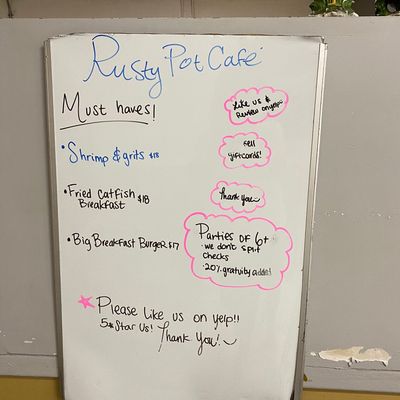 Rusty Pot Café
Must haves!
• Shrimp & grits $18
• Fried Catfish $18
Breakfast
• Big Breakfast Burger $17
Like us &
Review on yelp
sell
giftcards!
Thank you
Parties of 6+
· we don't split
checks
· 20% gratuity added!
Please like us on yelp!!
5★ Star Us!
Thank You!